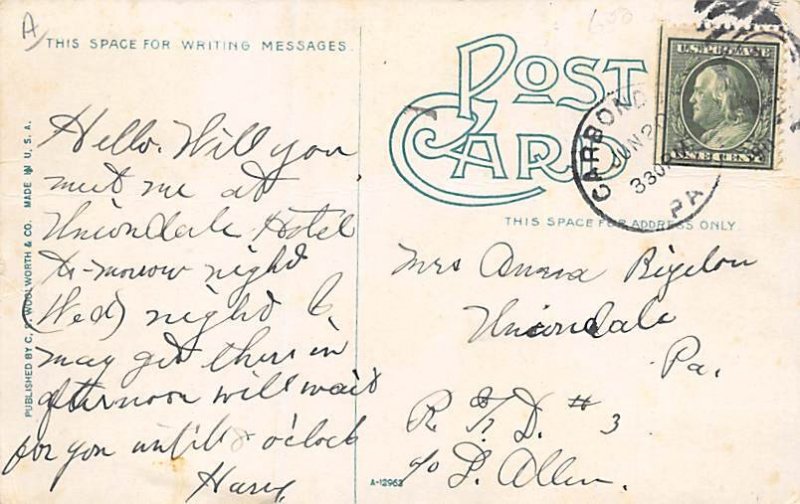 A
THIS SPACE FOR WRITING MESSAGES.
Hello. Will you
meet me at
Uniondale Hotel
to-morrow night
(Wed) night I
may get there in
afternoon will wait
for you untill 8 o'clock
Harry
PUBLISHED BY C. F. WOOLWORTH & CO. MADE IN U.S.A.
POST
CARD
THIS SPACE FOR ADDRESS ONLY.
CARBOND
JUN 20
330PM
PA
U.S. POSTAGE
ONE CENT
Mrs Anna Bigelow
Uniondale
Pa.
R. F. D. #3
c/o L. Allen.
A-12963